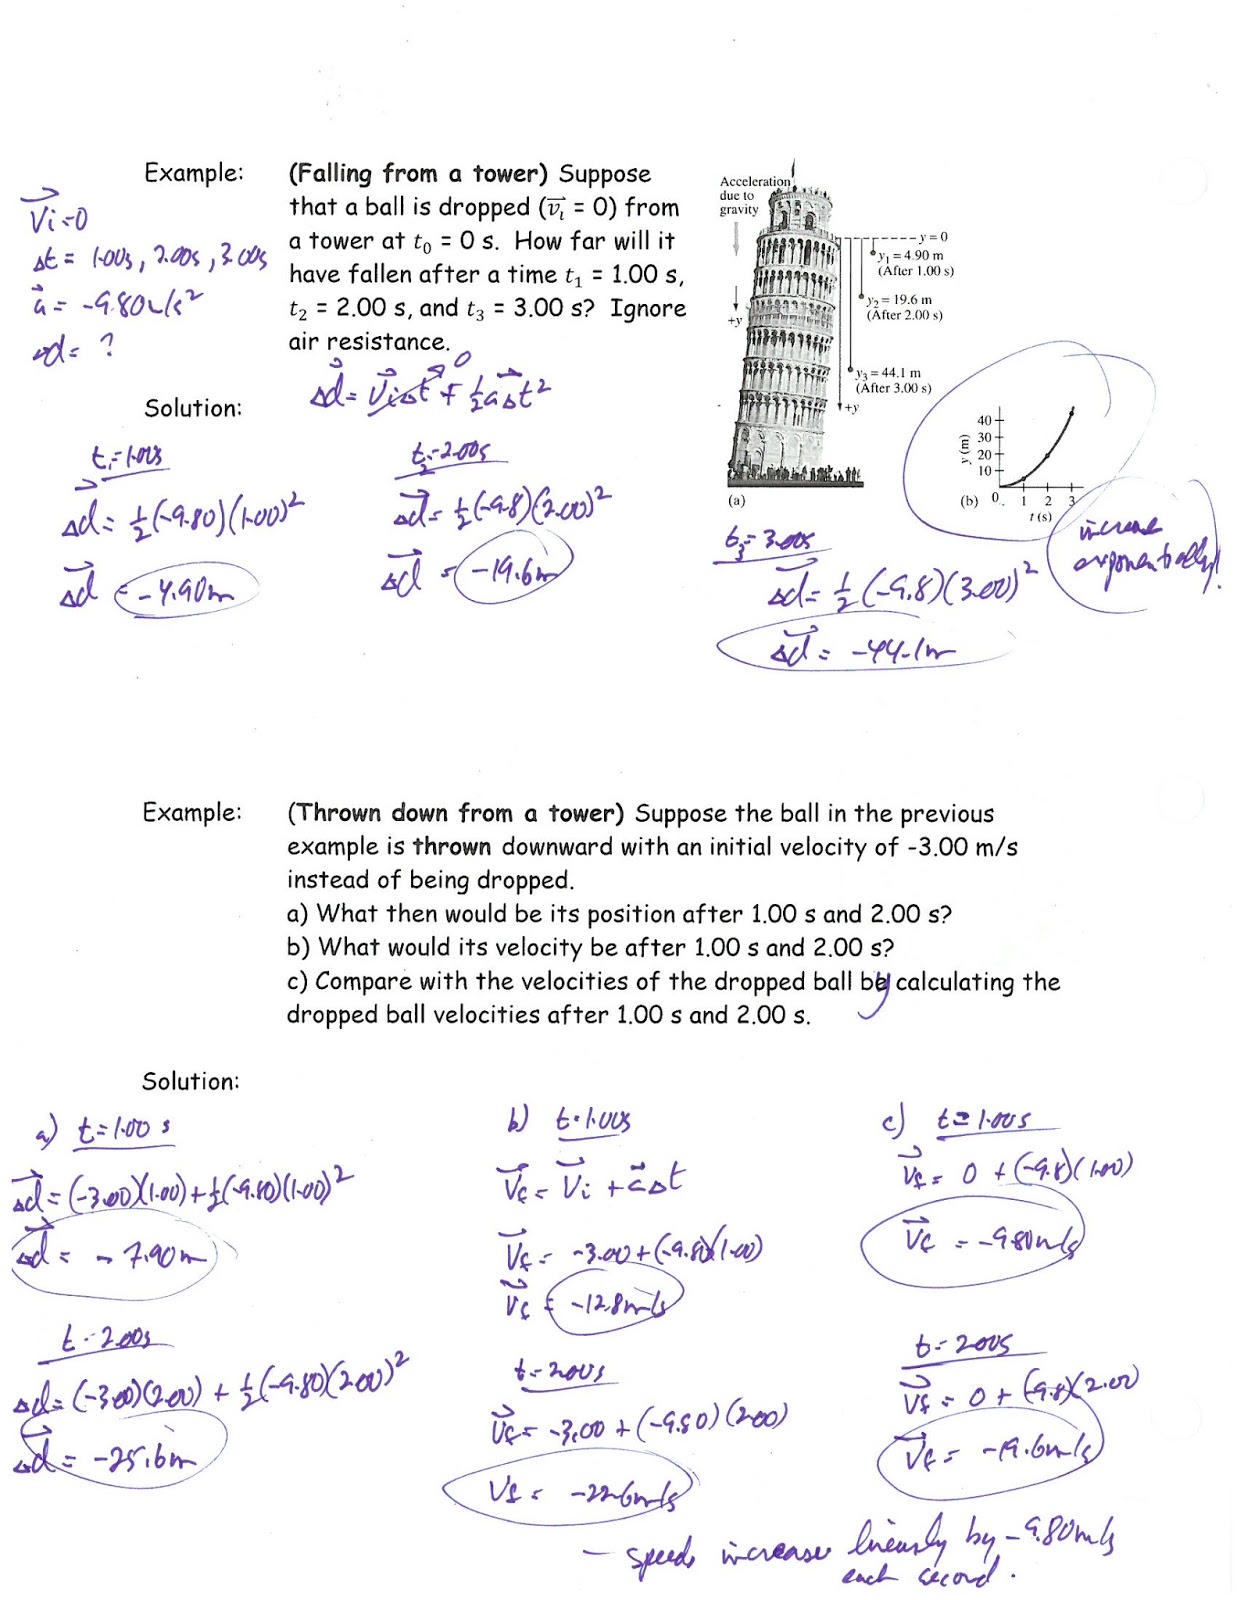 Example: (Falling from a tower) Suppose
that a ball is dropped (v⃗ᵢ = 0) from
a tower at t₀ = 0 s. How far will it
have fallen after a time t₁ = 1.00 s,
t₂ = 2.00 s, and t₃ = 3.00 s? Ignore
air resistance.
v⃗i = 0
Δt = 1.00s, 2.00s, 3.00s
a⃗ = -9.80 m/s²
Δd = ?
Acceleration
due to
gravity
+y
y = 0
y₁ = 4.90 m
(After 1.00 s)
y₂ = 19.6 m
(After 2.00 s)
y₃ = 44.1 m
(After 3.00 s)
+y
(a)
y (m)
40
30
20
10
0 1 2 3
t (s)
(b)
increase
exponentially!
Solution:
Δd⃗ = v⃗iΔt + ½a⃗Δt²
0
t₁=1.00s
Δd⃗ = ½(-9.80)(1.00)²
Δd⃗ = -4.90m
t₂=2.00s
Δd⃗ = ½(-9.8)(2.00)²
Δd⃗ = -19.6m
t₃=3.00s
Δd⃗ = ½(-9.8)(3.00)²
Δd⃗ = -44.1m
Example: (Thrown down from a tower) Suppose the ball in the previous
example is thrown downward with an initial velocity of -3.00 m/s
instead of being dropped.
a) What then would be its position after 1.00 s and 2.00 s?
b) What would its velocity be after 1.00 s and 2.00 s?
c) Compare with the velocities of the dropped ball by calculating the
dropped ball velocities after 1.00 s and 2.00 s.
Solution:
a) t=1.00 s
Δd⃗ = (-3.00)(1.00)+½(-9.80)(1.00)²
Δd⃗ = -7.90m
t=2.00s
Δd = (-3.00)(2.00) + ½(-9.80)(2.00)²
Δd⃗ = -25.6m
b) t=1.00s
v⃗f = v⃗i + a⃗Δt
v⃗f = -3.00+(-9.80)(1.00)
v⃗f = -12.8m/s
t=2.00s
v⃗f = -3.00 + (-9.80)(2.00)
vf = -22.6m/s
c) t=1.00s
v⃗f = 0 + (-9.8)(1.00)
v⃗f = -9.80m/s
t=2.00s
v⃗f = 0 + (-9.8)(2.00)
v⃗f = -19.6m/s
- speeds increase linearly by -9.80m/s
each second.